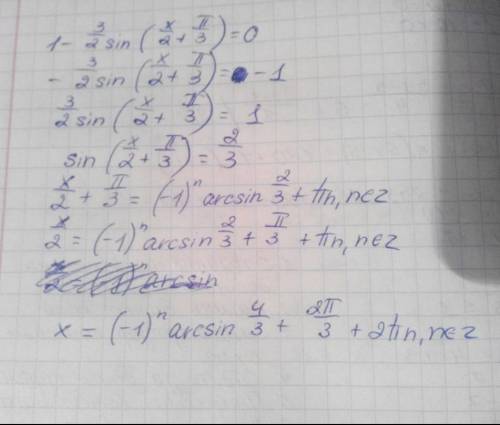 1 - 3/2 sin (x/2 + π/3) = 0
- 3/2 sin (x/2 + π/3) = - 1
3/2 sin (x/2 + π/3) = 1
sin (x/2 + π/3) = 2/3
x/2 + π/3 = (-1)^n arcsin 2/3 + πn, n∈z
x/2 = (-1)^n arcsin 2/3 + π/3 + πn, n∈z
x = (-1)^n arcsin 4/3 + 2π/3 + 2πn, n∈z